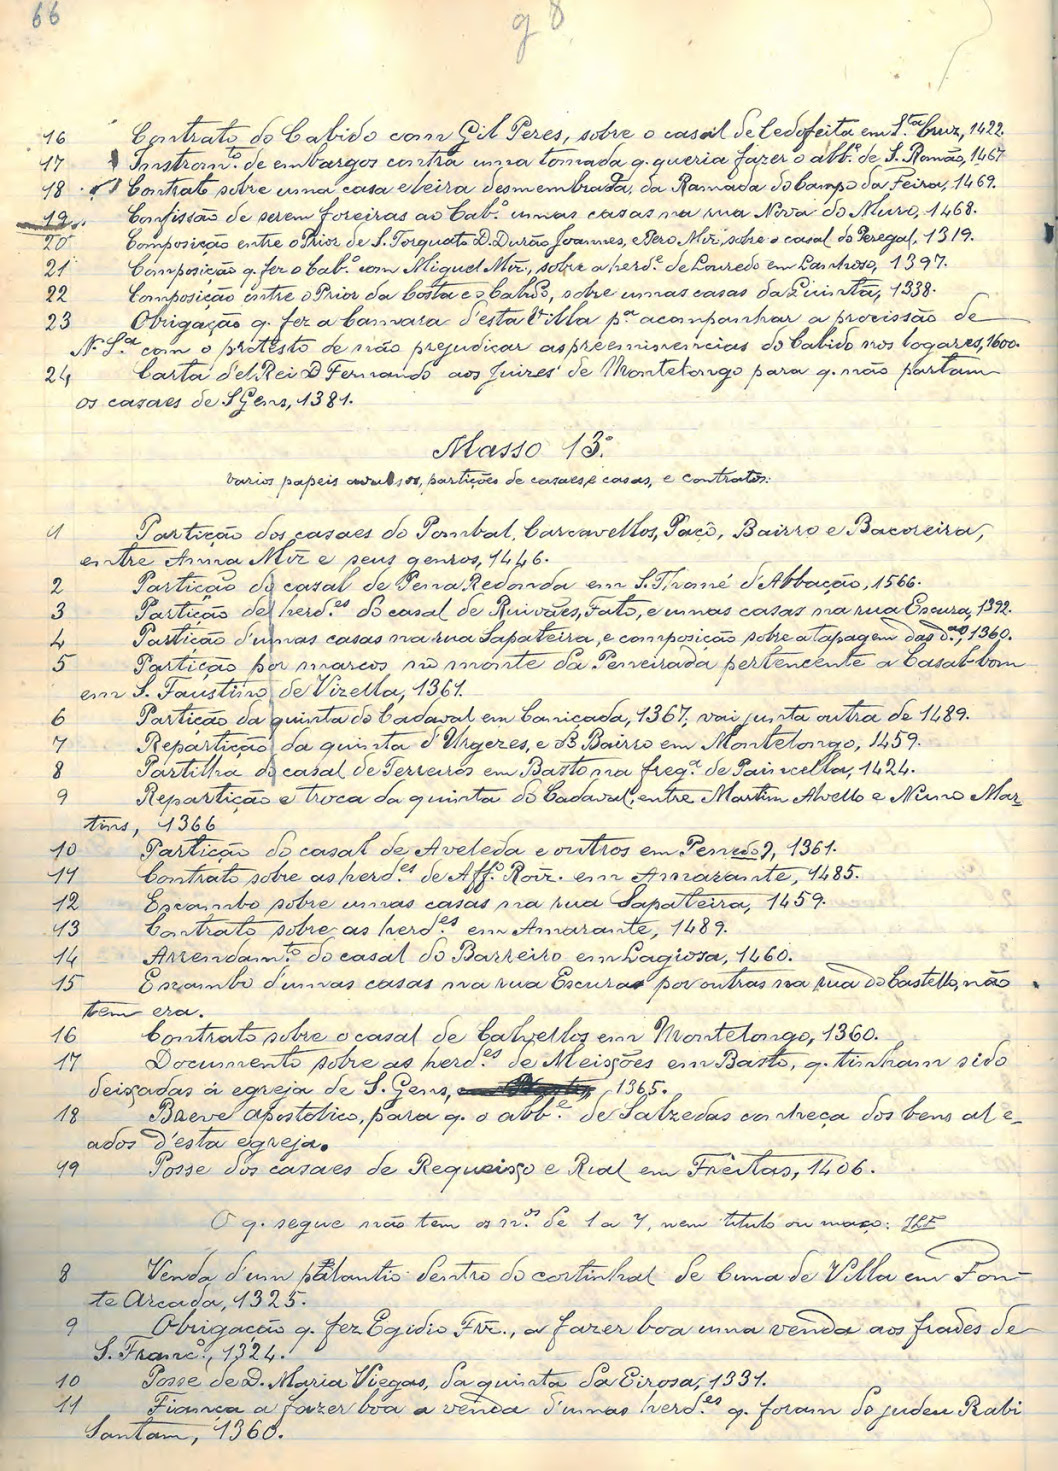 66
g 8
16 Contrato do Cabido com Gil Peres, sobre o casal de Cedofeita em S.ta Cruz, 1422.
17 Instrom.to de embargos contra uma tomada q. queria fazer o abb.e de S. Romão, 1467
18 Contrato sobre uma casa e leira desmembrada, da Ramada do Campo da Feira, 1469.
19 Confissão de serem foreiras ao Cab.o umas casas na rua Nova do Muro, 1468.
20 Composição entre o Prior de S. Torquato D. Durão Joannes, e Pero Miz, sobre o casal do Peregal, 1319.
21 Composição q. fez o Cab.o com Miguel Miz, sobre a herd.e de Louredo em Lanhoso, 1397.
22 Composição entre o Prior da Costa e o Cabido, sobre umas casas da Quintã, 1338.
23 Obrigação q. fez a Camara d'esta Villa p.a acompanhar a procissão de
N. S.a com o protesto de não prejudicar as preeminencias do Cabido nos logares, 1600.
24 Carta del Rei D Fernando aos Juizes de Montelongo para q. não partam
os casaes de S Gens, 1381.
Masso 13.o
varios papeis avulsos, partições de casaes, e casas, e contratos:
1 Partição dos casaes do Pombal, Carcavellos, Paçô, Bairro e Bacoreira,
entre Anna Miz e seus genros, 1446.
2 Partição do casal de Pena Redonda em S. Thomé d'Abbação, 1566.
3 Partição de herd.es do casal de Ruivães, Fato, e umas casas na rua Escura, 1392.
4 Partição d'umas casas na rua Sapateira, e composição sobre a tapagem das d.as, 1360.
5 Partição por marcos no monte da Peneirada pertencente a Casal-bom
em S. Faustino de Vizella, 1361.
6 Partição da quinta do Cadaval em Caniçada, 1367, vai junta outra de 1489.
7 Repartição da quinta d'Urgezes, e do Bairro em Montelongo, 1459.
8 Partilha do casal de Terreiros em Basto na freg.a de Painzella, 1424.
9 Repartição e troca da quinta do Cadaval, entre Martim Alvello e Nuno Mar-
tins, 1366
10 Partição do casal de Aveleda e outros em 1361.
11 Contrato sobre as herd.es de Aff.o Roiz. em Amarante, 1485.
12 Escambo sobre umas casas na rua Sapateira, 1459.
13 Contrato sobre as herd.es em Amarante, 1489.
14 Arrendam.to do casal do Barreiro em Lagiosa, 1460.
15 Escambo d'umas casas na rua Escura por outras na rua do Castello, não
tem era.
16 Contrato sobre o casal de Calvellos em Montelongo, 1360.
17 Documento sobre as herd.es de Meixões em Basto, q. tinham sido
deixadas á egreja de S. Gens, 1365.
18 Breve apostolico, para q. o abb.e de Salzedas conheça dos bens ali e-
ados d'esta egreja.
19 Posse dos casaes de Requeixo e Rial em Freitas, 1406.
O q. segue não tem os n.os de 1 a 7, nem titulo ou maço:
8 Venda d'um dentro do cortinhal de Cima de Villa em Fon-
te Arcada, 1325.
9 Obrigação q. fez Egidio Frz., a fazer boa uma venda aos frades de
S. Franc.o, 1324.
10 Posse de D. Maria Viegas, da quinta da Eirosa, 1331.
11 Fiança a fazer boa a venda d'umas herd.es q. foram do judeu Rabi
Santam, 1360.